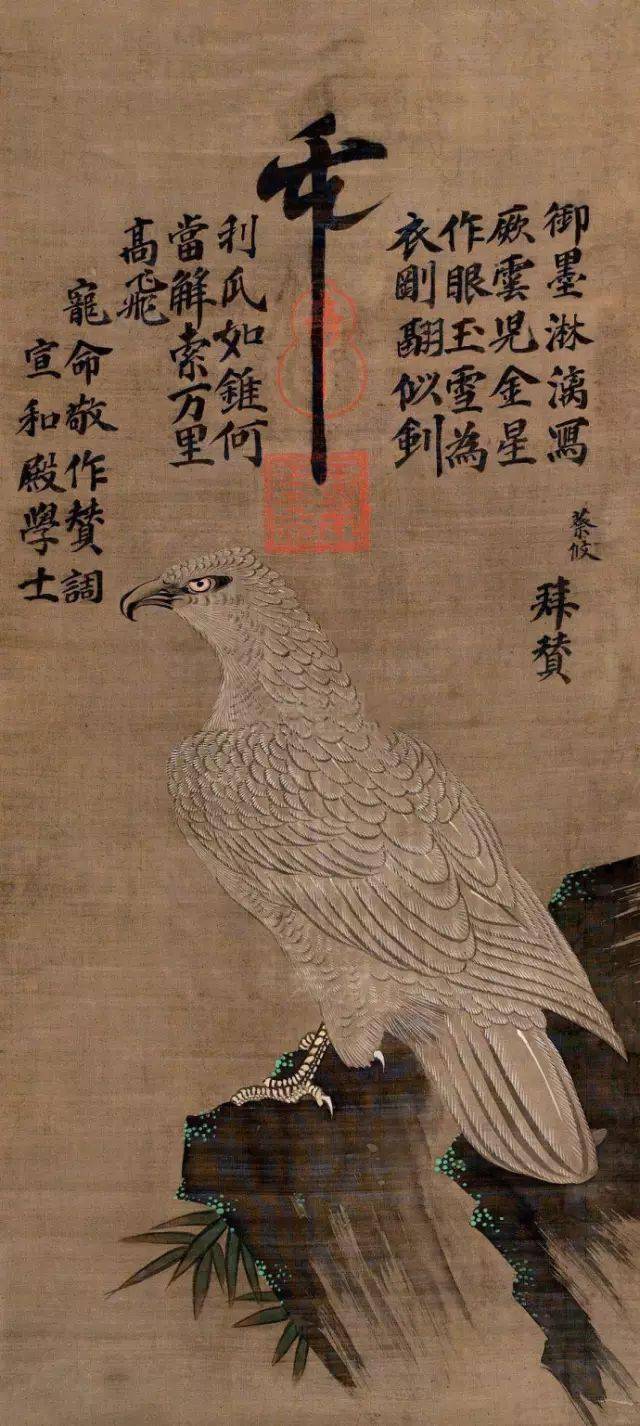 御墨淋漓寫
厥雲兒金星
作眼玉雪為
衣剛翮似
利爪如錐何
當解索万里
高飛
寵命敬作賛
宣和殿學士
蔡攸
拜賛